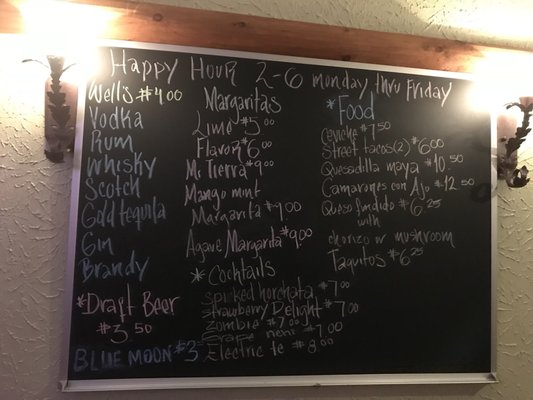 Happy Hour 2-6 monday thru Friday
Wells $4.00
Vodka
Rum
Whisky
Scotch
Gold tequila
Gin
Brandy
*Draft Beer
$3.50
BLUE MOON $3
Margaritas
Lime $5.00
Flavor $6.00
Mi Tierra $9.00
Mango mint
Margarita $9.00
Agave Margarita $9.00
*Cocktails
spiked horchata $7.00
strawberry Delight $7.00
Zombie $7.00
$7.00
Electric te $8.00
*Food
ceviche $7.50
Street tacos(2) $6.00
Quesadilla maya $10.50
Camarones con Ajo $12.50
Queso fundido $6.25
with
chorizo or mushroom
Taquitos $6.25